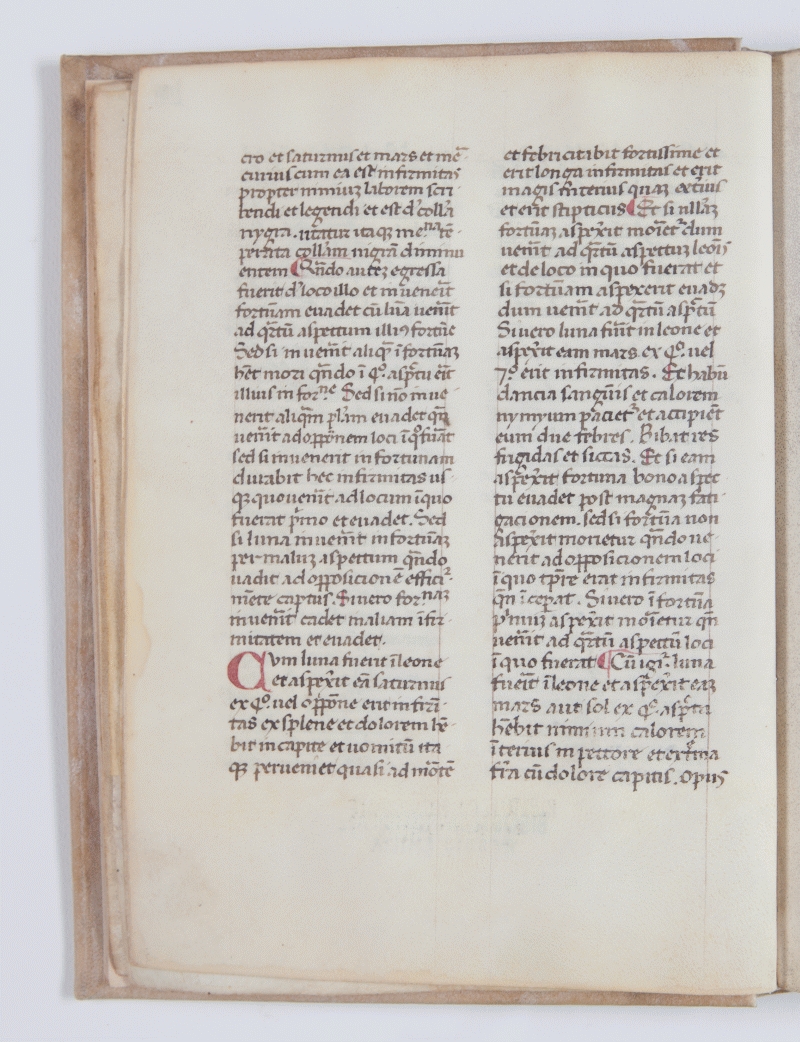 cro et saturnus et mars et mē
curius cum ea est infirmitas
propter nimiuȝ laborem scri
bendi et legendi et est d' collā
nygra. utatur itaqȝ me tē
perata collām nigrā diminu
entem ¶ Qn̄do auteȝ egressa
fuerit d' loco illo et inuenerit
fortunam euadet cū luna uenit
ad qrtū aspettum illiꝰ fortūe
Sed si inuenit aliqȝ ī fortūaȝ
het mori qn̄do ī qͦ. asptu ēit
illius in forⁿᵉ Sed si nō inue
nerit aliqm plām euadet qn̄
uenit ad oppōnem loci ī qͦ fuāt
sed si inuenerit in fortunam
durabit hec infirmitas us
qȝ quo uenit ad locum ī quo
fuerat pīmo et euadet. Sed
si luna inuenit in fortūaȝ
per maluȝ aspettum qn̄do
uadit ad opposicionē effici
mēte captus. Si uero forⁿᵃȝ
inuenit cadet maliam ī fir
mitatem et euadet.
Cum luna fuerit ī leone
et aspexit eā saturnus
ex qͦ uel oppōne erit infirī
tas ex splene et dolorem hē
bit in capite et uomitū ita
qȝ perueniet quasi ad mōtē
et febricitabit fortissime et
erit longa infirmitas et erit
magis interius quaȝ extius
et erit stipticus ¶ Et si nllaȝ
fortūaȝ aspexit moiet dum
uenit ad qrtū aspettuȝ leoīs
et de loco in quo fuerat et
si fortūam aspexerit euadȝ
dum uenit ad qrtū asptū
Si uero luna fūit in leone et
aspexit eam mars ex qͦ. uel
7ͦ erit infirmitas. Et habū
dancia sangūis et calorem
nymyum paciet et accipiēt
eum due febres. Bibat res
frigidas et siccas. Et si eam
aspexit fortuna bono aspec
tu euadet post magnaȝ fati
gacionem. sed si fortūa non
aspexit morietur qn̄do ue
nerit ad opposicionem loci
ī quo tpre erat infirmitas
qn̄ īcepat. Si uero ī fortūa
pmuȝ aspexit moietur qn̄
uenit ad qrtū aspettū loci
ī quo fuerat ¶ Cū igr luna
fueit ī leone et aspexit eaȝ
mars aut sol ex qͦ. asptu
hebit nimium calorem
ī terius in pettore et extīma
frīa cū dolore capitis. Opus